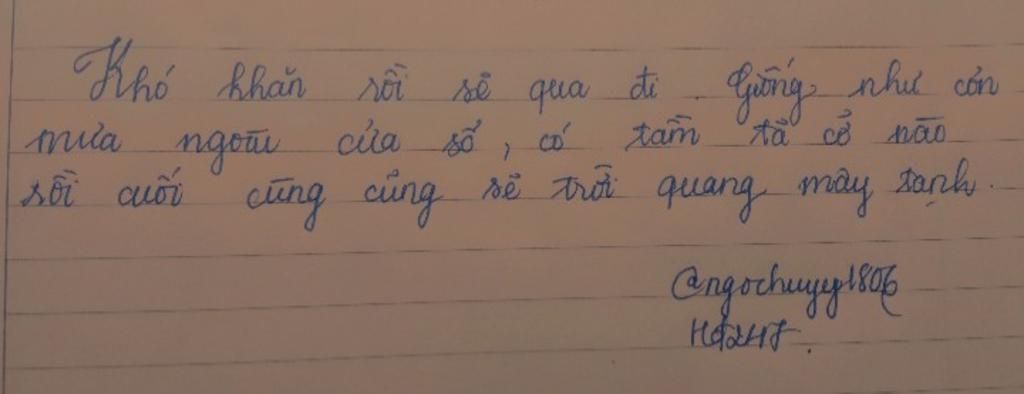 Khó khăn rồi sẽ qua đi. Giống như cơn
mưa ngoài cửa sổ, có tầm tã cỡ nào
rồi cuối cùng cũng sẽ trời quang mây tạnh.
@ngochuyy1806